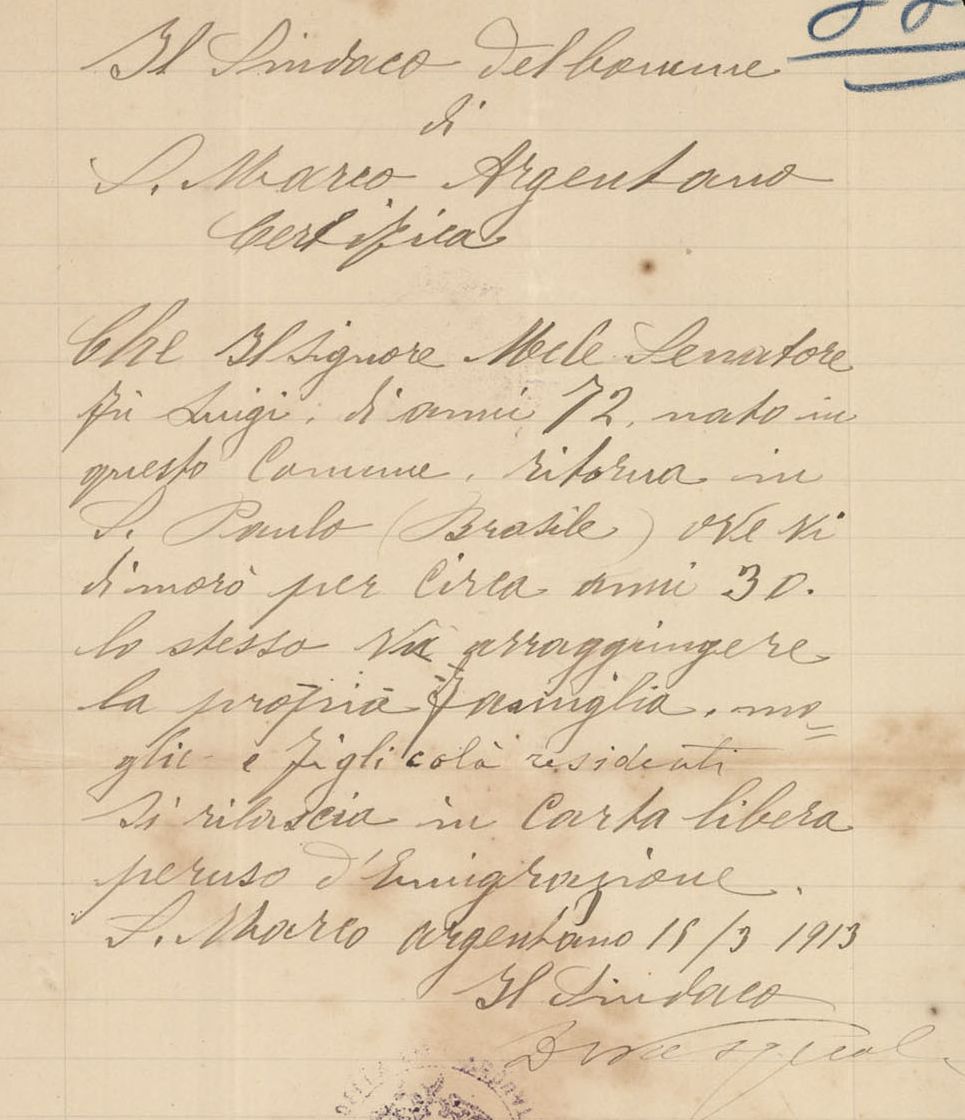 Il Sindaco del Comune
di
S. Marco Argentano
Certifica
Che Il Signore Mele Senatore
fù Luigi, di anni 72, nato in
questo Comune, ritorna in
S. Paulo (Brasile) ove vi
dimorò per Circa anni 30.
lo stesso và arraggiungere
la propria famiglia, mo=
glie e figli colà residenti
Si rilascia in Carta libera
peruso d'Emigrazione.
S. Marco argentano 15/3 1913
Il Sindaco